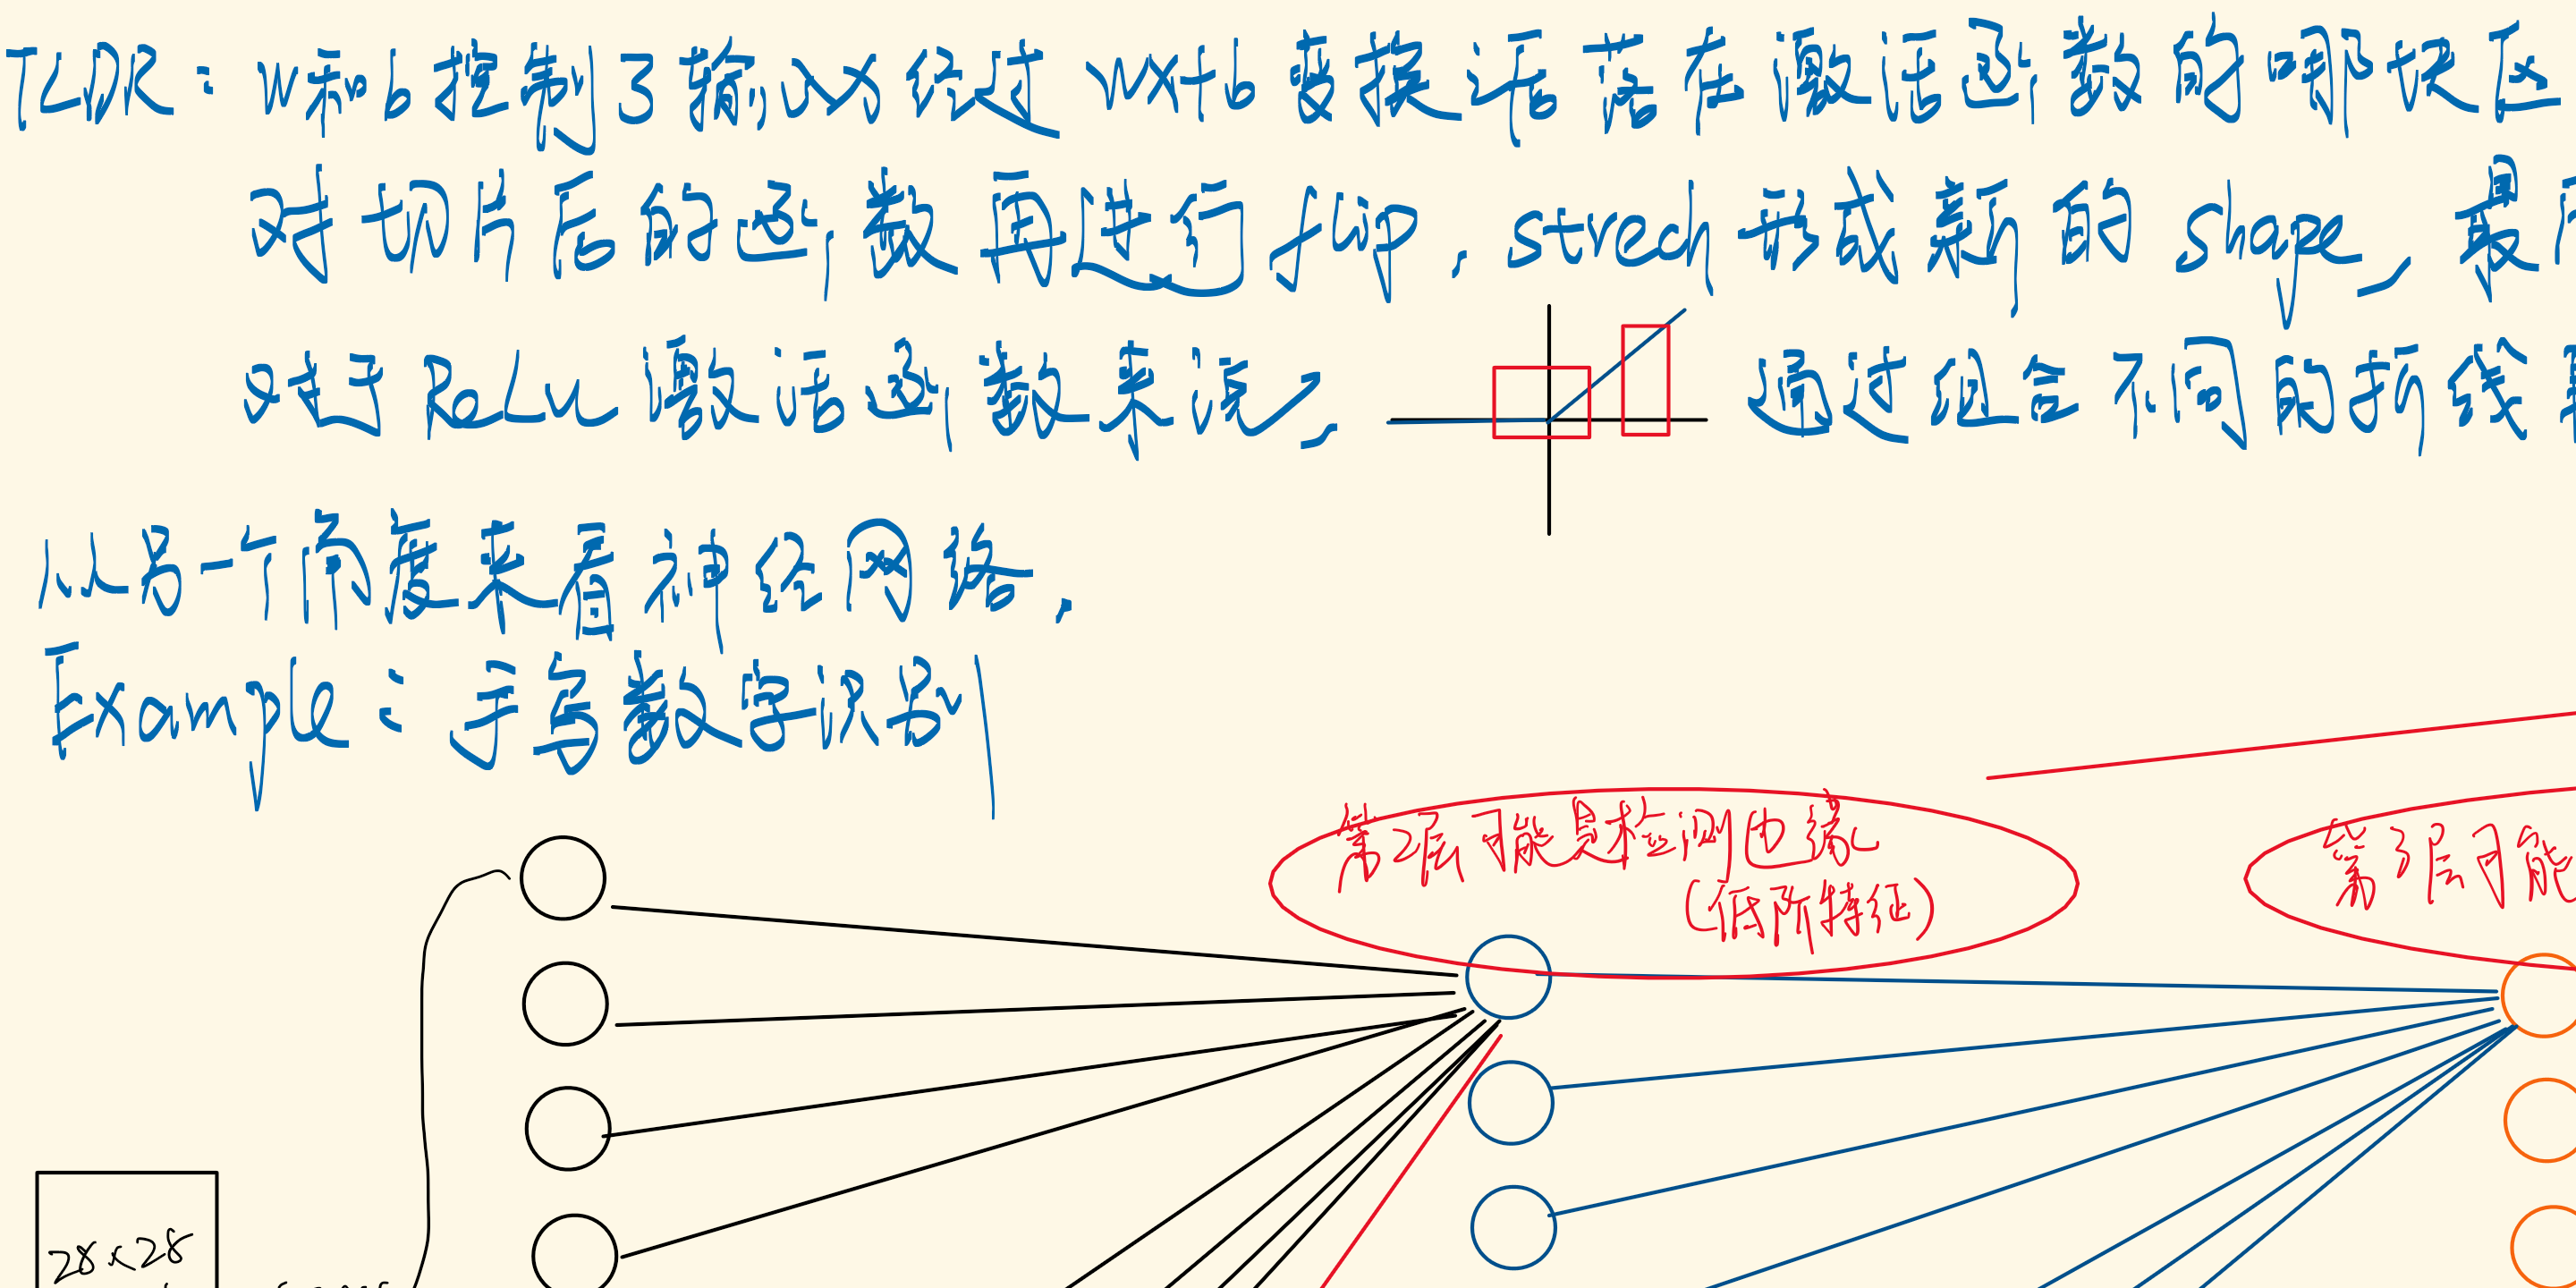 TLDR：w和b控制了输入x经过 wx+b 变换话落在激活函数的哪块区
对切片后的函数再进行flip，strech形成新的shape，最
对于ReLu激活函数来说，通过组合不同的折线
从另一个角度来看神经网络.
Example：手写数字识别
第2层可能是检测边缘
（低阶特征）
第3层可能
28×28